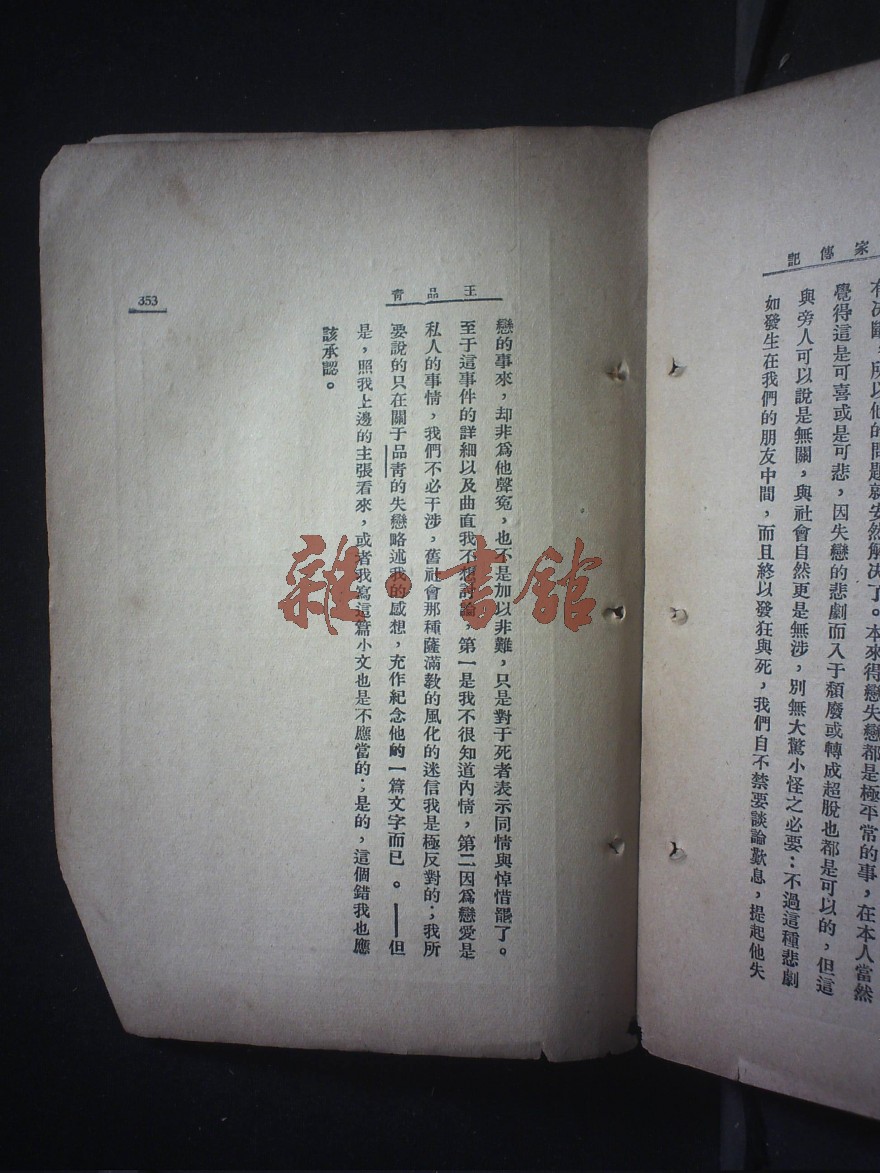 家傳記
有決斷，所以他的問題就安然解決了。本來得戀失戀都是極平常的事，在本人當然
覺得這是可喜或是可悲，因失戀的悲劇而入于頹廢或轉成超脫也都是可以的，但這
與旁人可以說是無關，與社會自然更是無涉，別無大驚小怪之必要：不過這種悲劇
如發生在我們的朋友中間，而且終以發狂與死，我們自不禁要談論歎息，提起他失
王品青
戀的事來，却非爲他聲冤，也不是加以非難，只是對于死者表示同情與悼惜罷了。
至于這事件的詳細以及曲直我不想討論，第一是我不很知道內情，第二因爲戀愛是
私人的事情，我們不必干涉，舊社會那種薩滿教的風化的迷信我是極反對的；我所
要說的只在關于品青的失戀略述我的感想，充作紀念他的一篇文字而已。——但
是，照我上邊的主張看來，或者我寫這篇小文也是不應當的；是的，這個錯我也應
該承認。
353
雜·書館